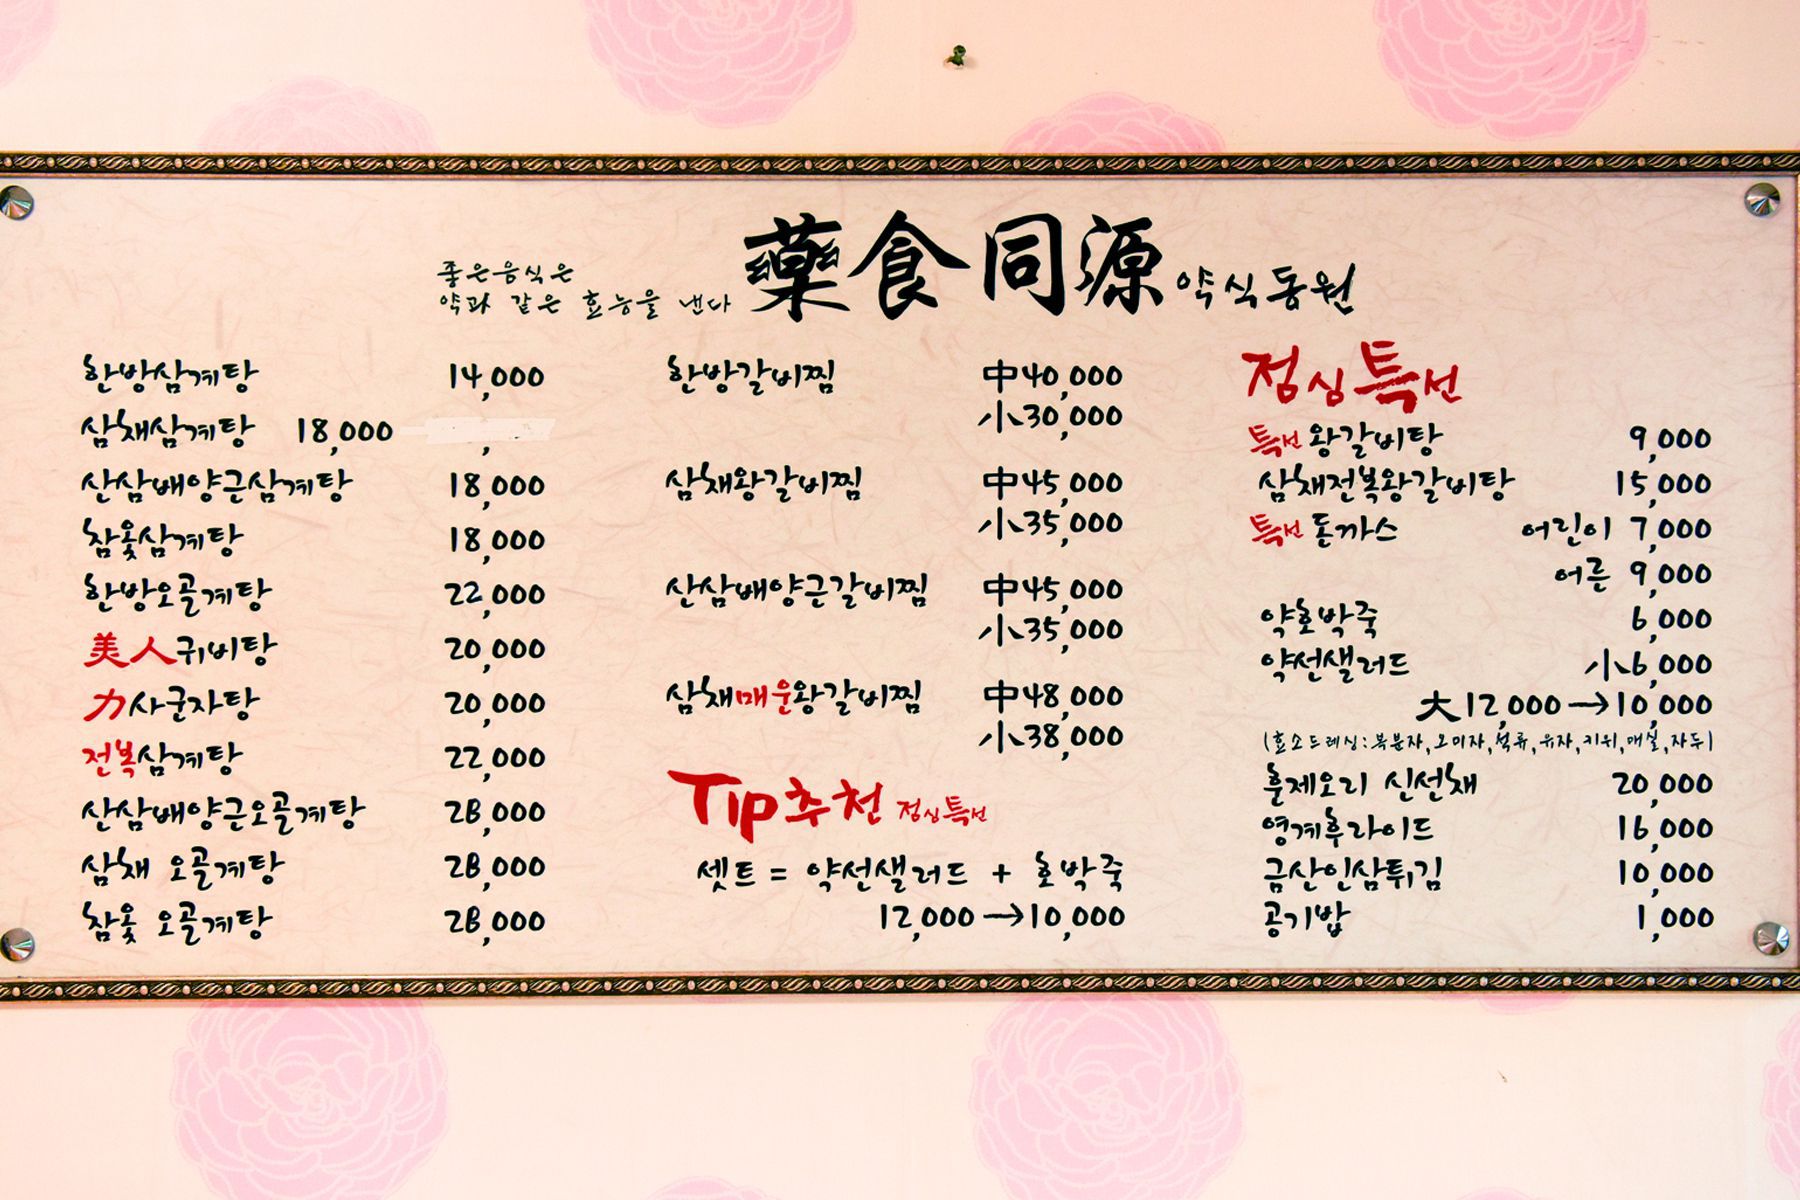 좋은음식은
약과 같은 효능을 낸다
藥食同源 약식동원
한방삼계탕 14,000
삼채삼계탕 18,000 ,
산삼배양근삼계탕 18,000
참옻삼계탕 18,000
한방오골계탕 22,000
美人귀비탕 20,000
力사군자탕 20,000
전복삼계탕 22,000
산삼배양근오골계탕 28,000
삼채 오골계탕 28,000
참옻 오골계탕 28,000
한방갈비찜 中40,000
小30,000
삼채왕갈비찜 中45,000
小35,000
산삼배양근갈비찜 中45,000
小35,000
삼채매운왕갈비찜 中48,000
小38,000
Tip추천 점심특선
셋트 = 약선샐러드 + 호박죽
12,000→10,000
점심특선
특선왕갈비탕 9,000
삼채전복왕갈비탕 15,000
특선돈까스 어린이 7,000
어른 9,000
약호박죽 6,000
약선샐러드 小6,000
大12,000→10,000
(효소드레싱:복분자,오미자,석류,유자,키위,매실,자두)
훈제오리 신선채 20,000
영계후라이드 16,000
금산인삼튀김 10,000
공기밥 1,000